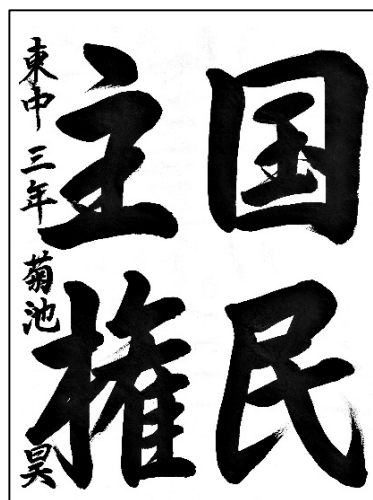 国民
主権
東中三年 菊池 昊